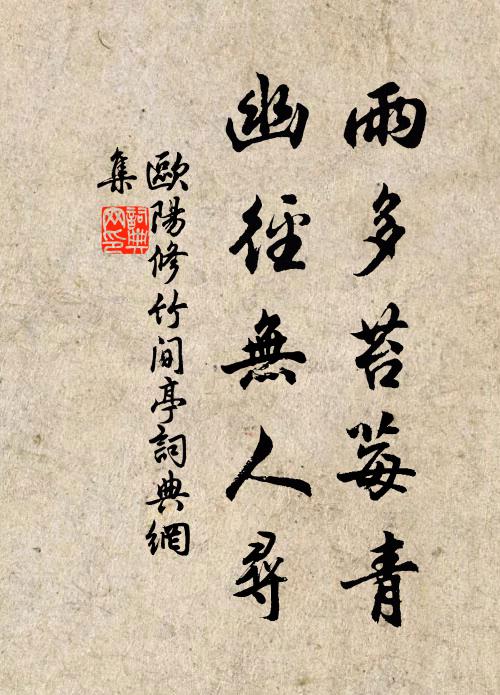 雨多苔莓青
幽徑無人尋
歐陽修竹间亭詞典網
集
詞典
网印